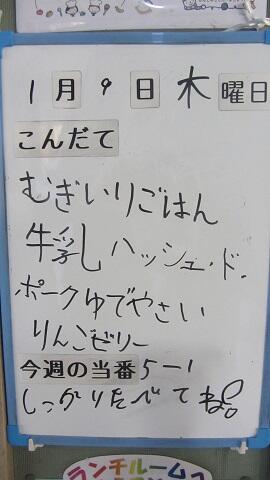 1月9日木曜日
こんだて
むぎいりごはん
牛乳 ハッシュ・ド・
ポークゆでやさい
りんごゼリー
今週の当番 5-1
しっかりたべてね!
ランチルーム